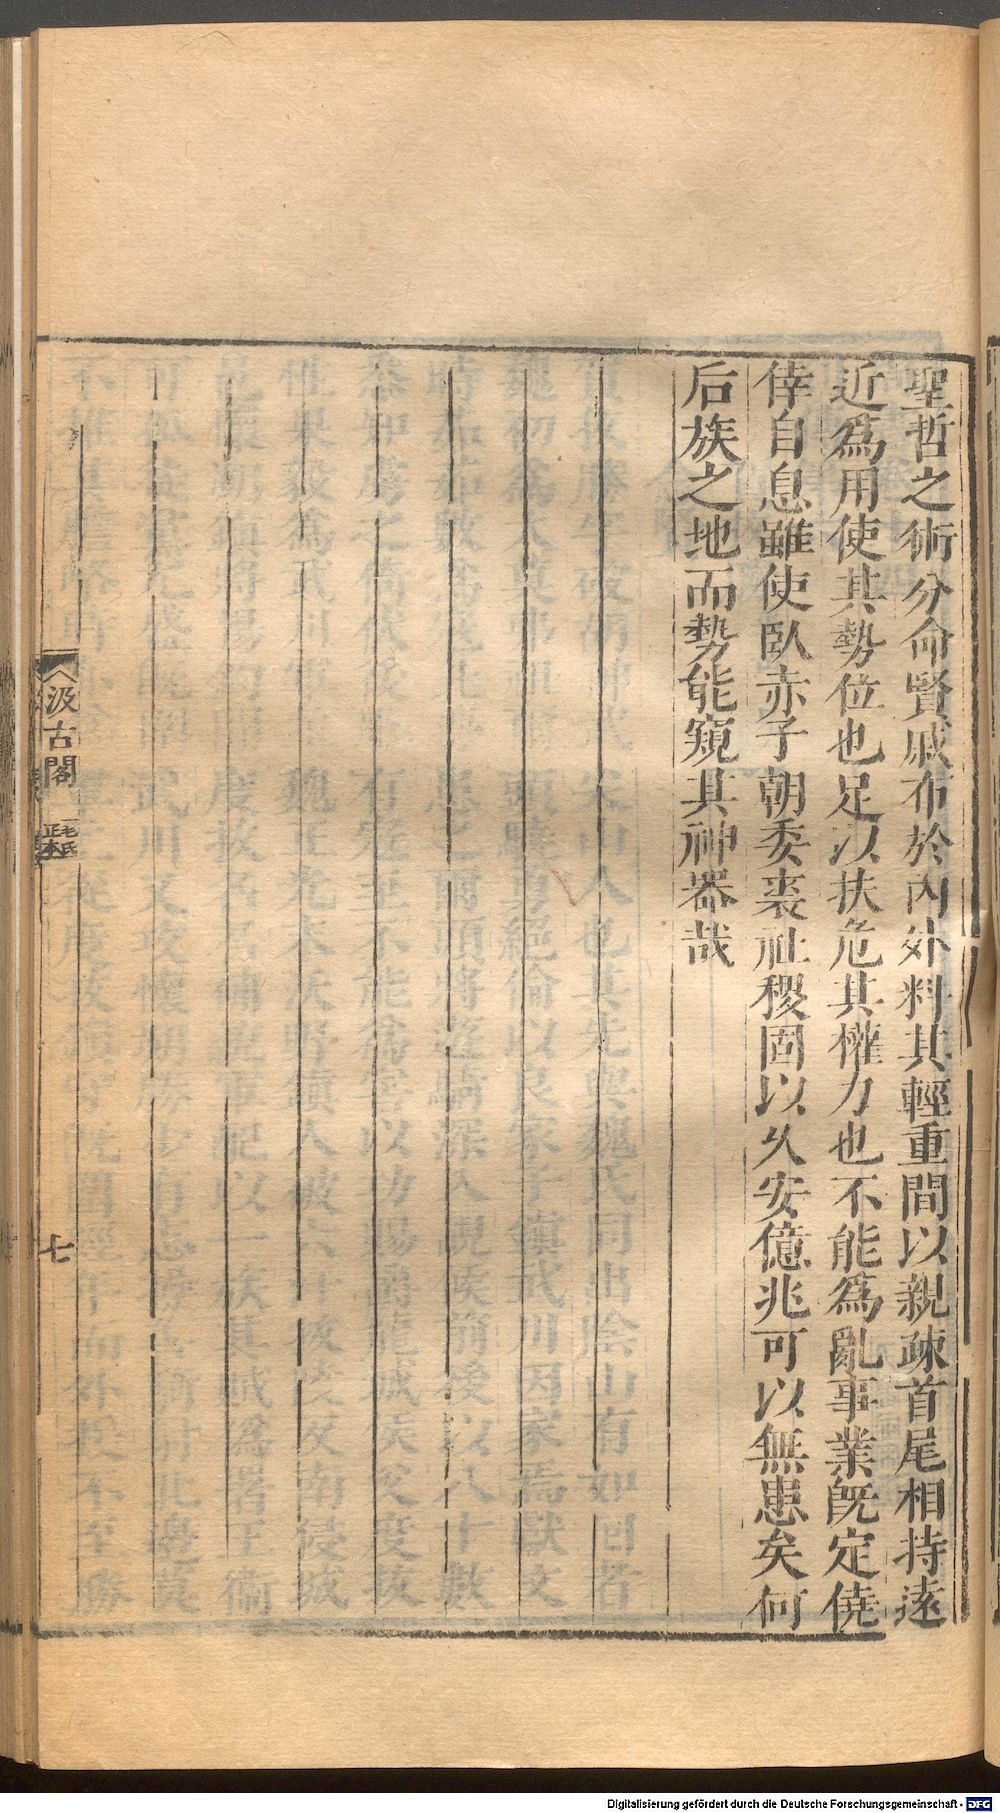 聖哲之術分命賢戚布於內外料其輕重間以親疎首尾相持遠
近爲用使其勢位也足以扶危其權力也不能爲亂事業既定僥
倖自息雖使臥赤子朝委裘社稷固以久安億兆可以無患矣何
后族之地而勢能窺其神器哉
汲古閣
毛氏
正本
七
Digitalisierung gefördert durch die Deutsche Forschungsgemeinschaft - DFG